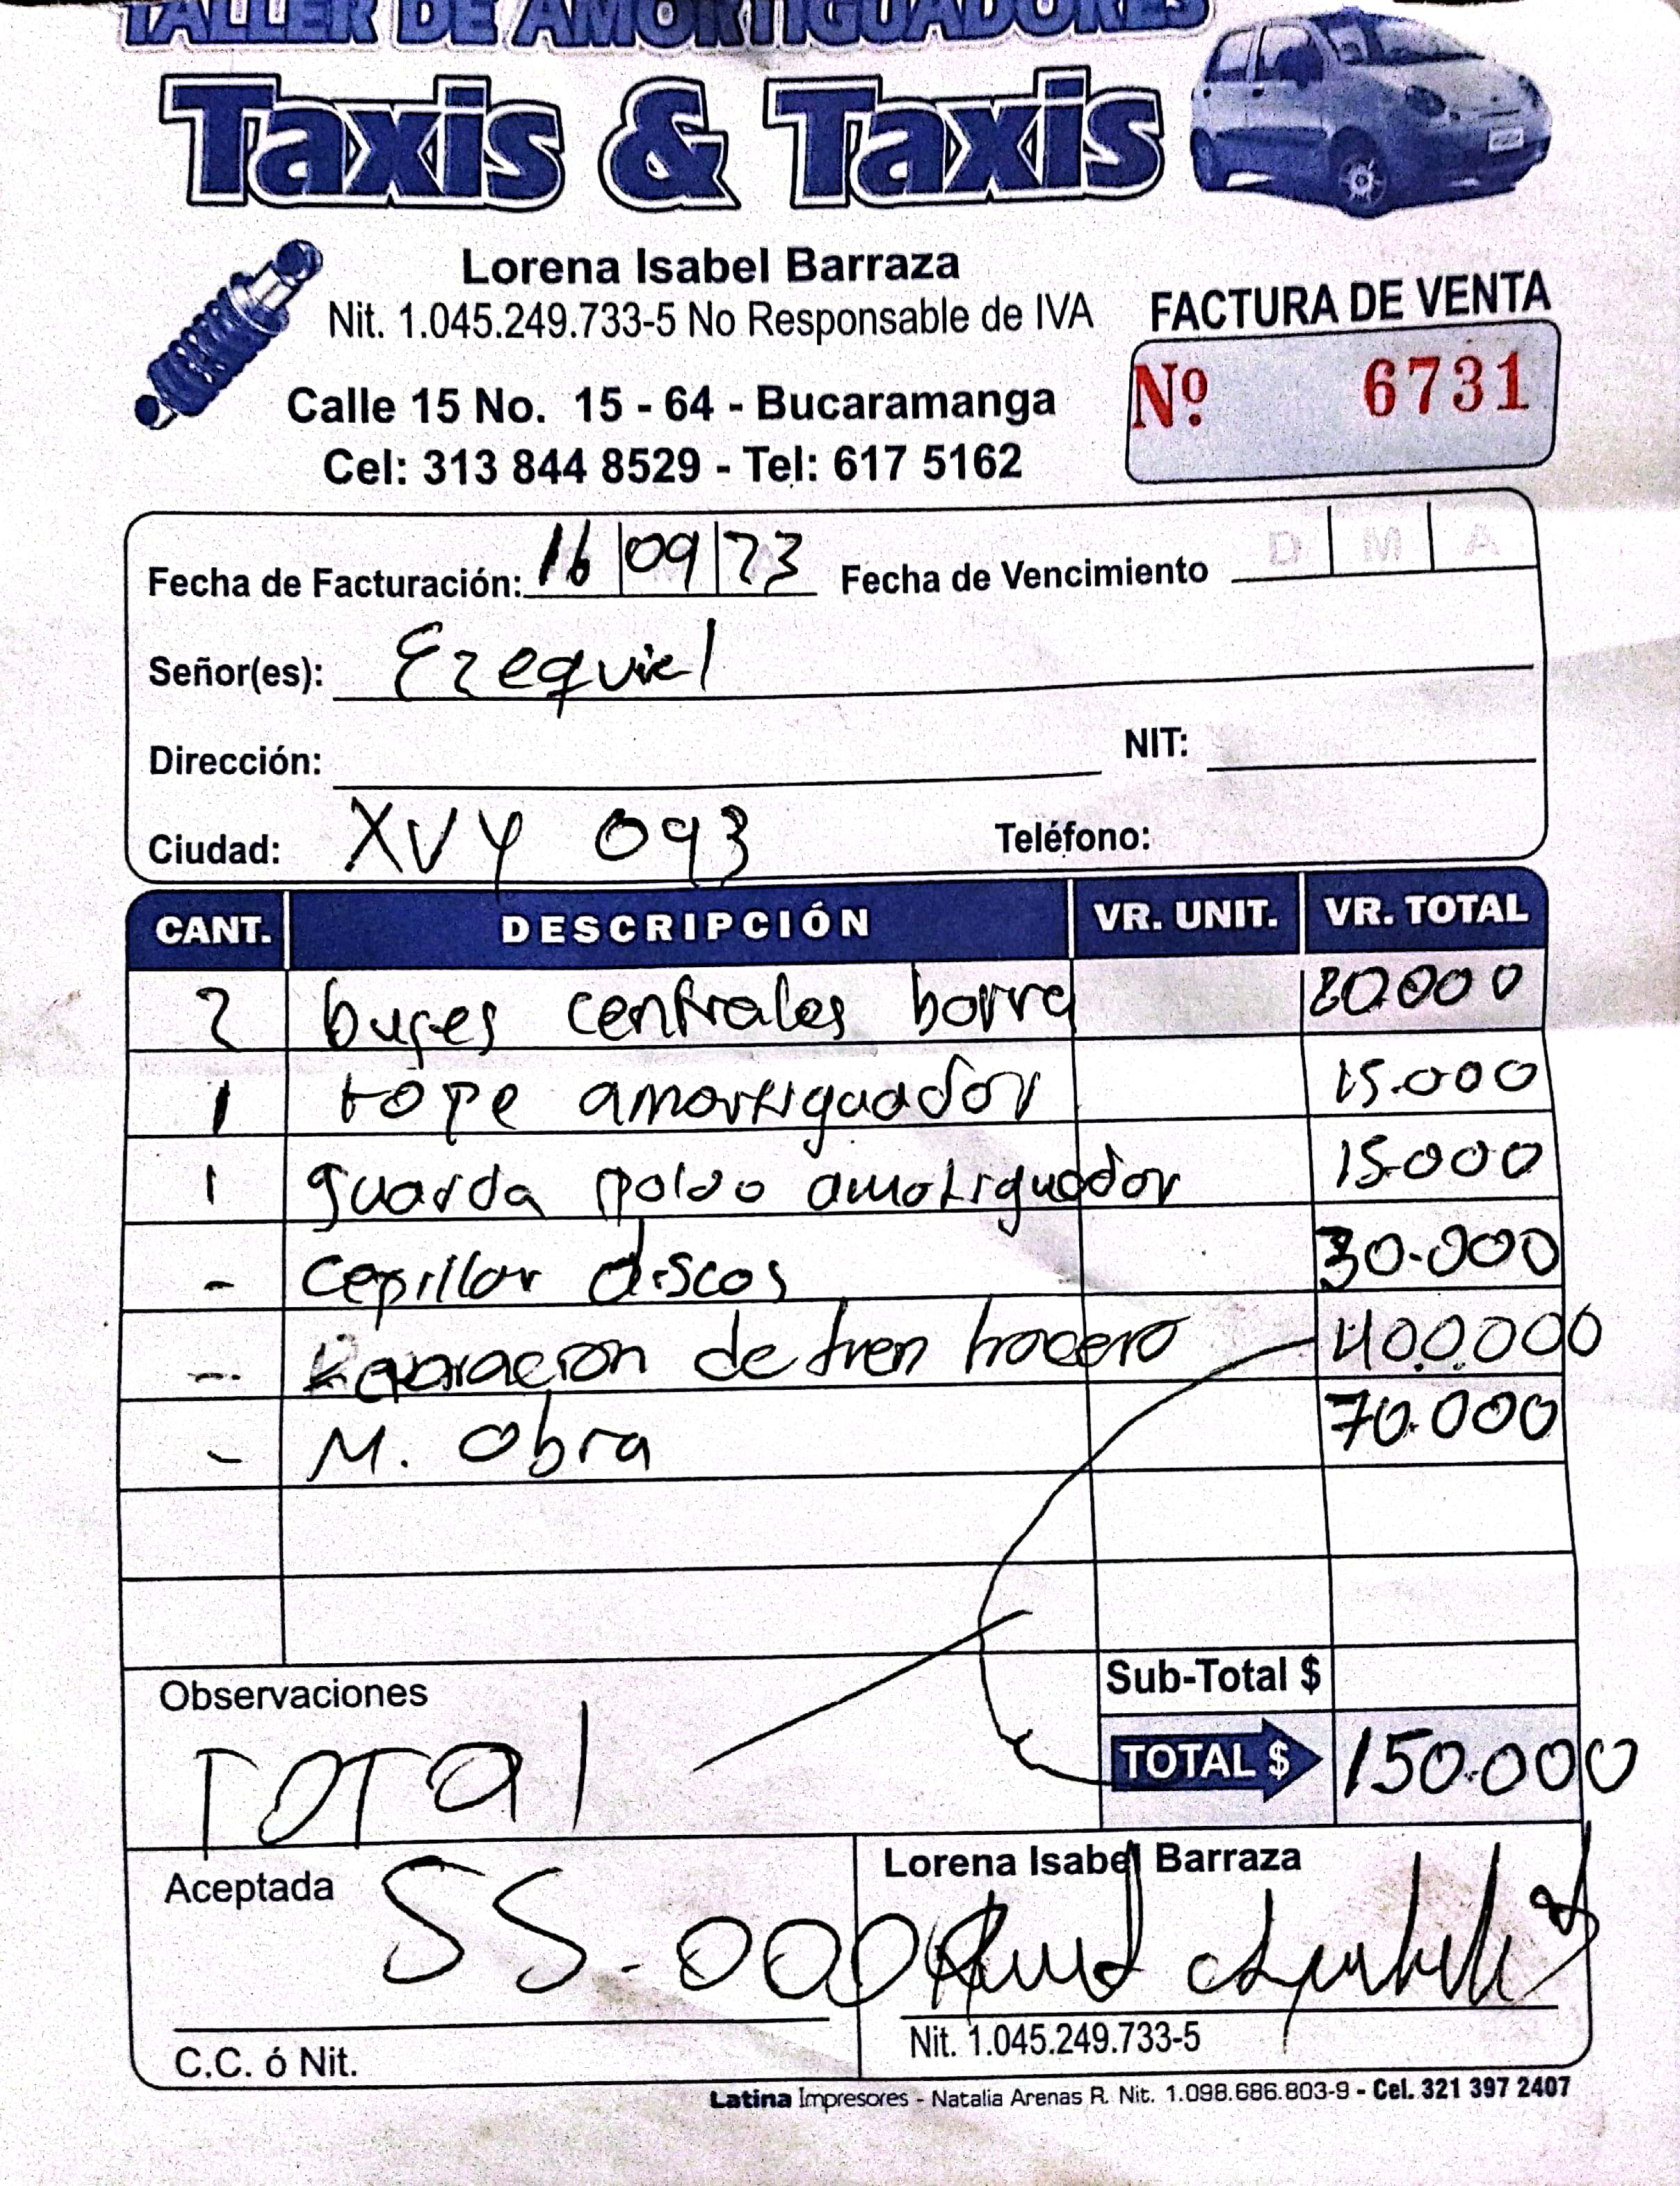 TALLER DE AMORTIGUADORES
Taxis & Taxis
Lorena Isabel Barraza
Nit. 1.045.249.733-5 No Responsable de IVA
FACTURA DE VENTA
Nº 6731
Calle 15 No. 15 - 64 - Bucaramanga
Cel: 313 844 8529 - Tel: 617 5162
Fecha de Facturación: 16 09 23 Fecha de Vencimiento D M A
Señor(es): Ezequiel
Dirección: NIT:
Ciudad: XVY 093 Teléfono:
CANT. DESCRIPCIÓN VR. UNIT. VR. TOTAL
2 bujes centrales borra 20000
1 tope amortiguador 15.000
1 guarda polvo amotiguador 15.000
- cepillar discos 30.000
- Reparacion de tren tracero 400.000
- M. Obra 70.000
Observaciones
Sub-Total $
TOTAL $ 150.000
TOTAl
Aceptada
55.000
Lorena Isabel Barraza
C.C. ó Nit.
Nit. 1.045.249.733-5
Latina Impresores - Natalia Arenas R. Nit. 1.098.686.803-9 - Cel. 321 397 2407